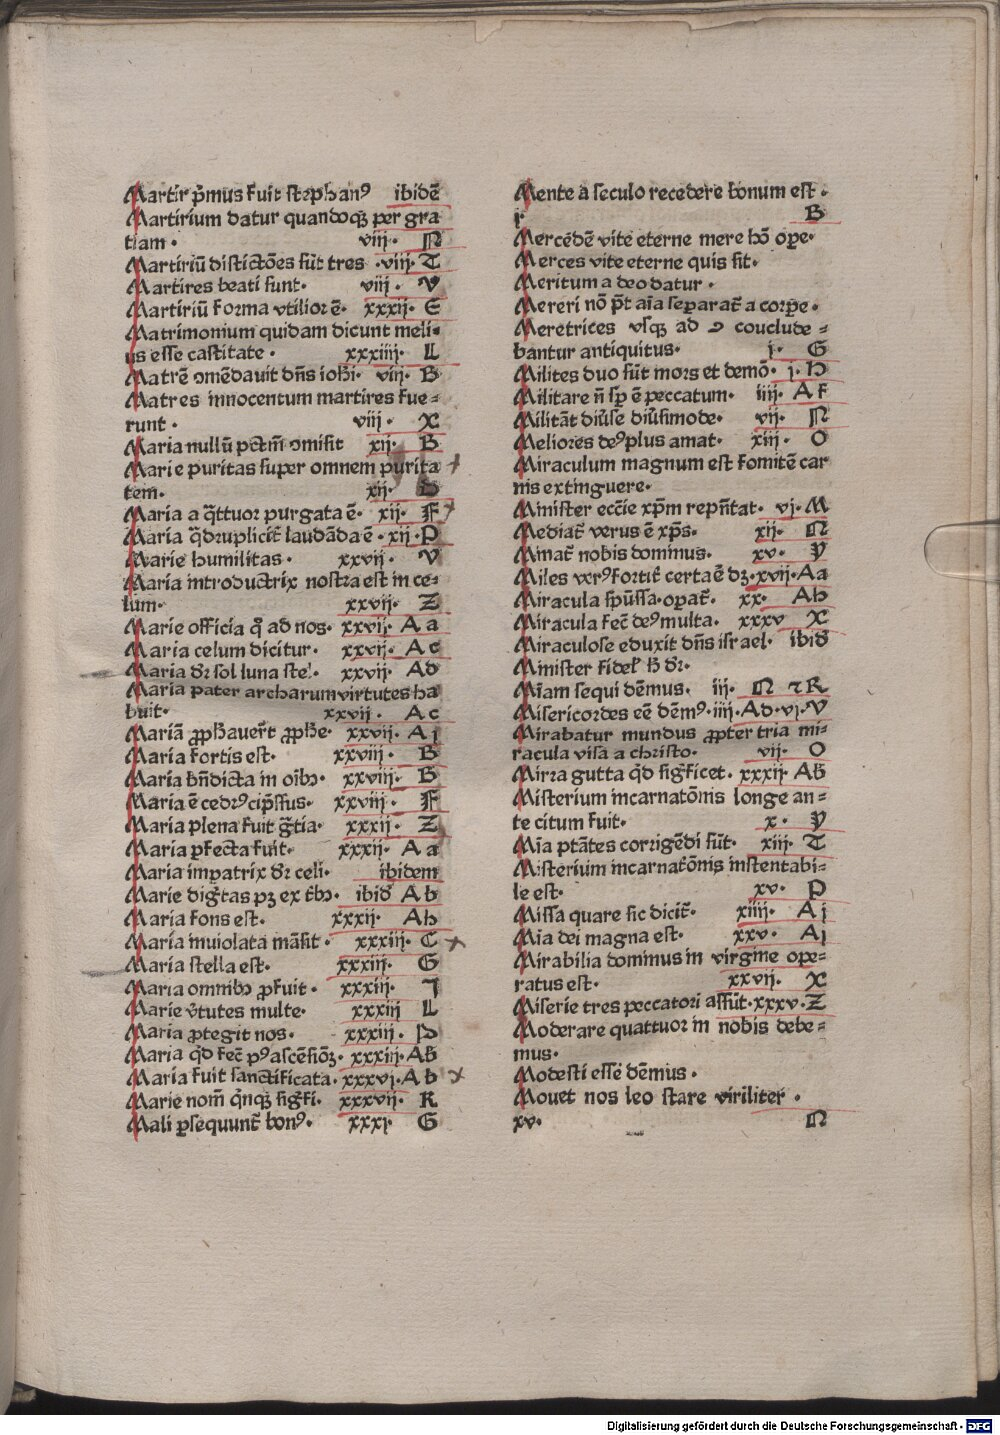 Martir p̄mus fuit stephanꝰ ibidē
Martirium datur quandoqꝫ per gra
tiam· viij· N
Martiriū distictōes sūt tres ·viij· T
Martires beati sunt· viij· V
Martiriū forma vtilior ē· xxxij· E
Matrimonium quidam dicunt meli-
us esse castitate· xxxiiij· L
Matrē ꝯmēdauit dn̄s iohi· viij· B
Matres innocentum martires fue-
runt· viij· X
Maria nullū pctm̄ ꝯmisit xij· B
Marie puritas super omnem purita
tem· xij· D
Maria a q̄ttuor purgata ē· xij· F
Maria q̄druplicit̄ laudāda ē· xij· P
Marie humilitas· xxvij· V
Maria introductrix nostra est in ce-
lum· xxvij· Z
Marie officia q̄ ad nos· xxvij· Aa
Maria celum dicitur· xxvij· Ac
Maria dr̄ sol luna ste· xxvij· Ad
Maria pater archarum virtutes ha
buit· xxvij· Ac
Mariā ꝓphauer̄t ꝓphe· xxvij· Aj
Maria fortis est· xxviij· B
Maria bn̄dicta in oībꝫ· xxviij· B
Maria ē cedrꝰ cip̄ssus· xxviij· F
Maria plena fuit gr̄tia· xxxij· Z
Maria ꝑfecta fuit· xxxij· Aa
Maria impatrix dr̄ celi· ibidem
Marie diḡtas pꝫ ex t̄bꝫ· ibid̄ Ab
Maria fons est· xxxij· Ah
Maria inuiolata māsit· xxxiij· C
Maria stella est· xxxiij· G
Maria omnibꝫ ꝓfuit· xxxiij· I
Marie v̄tutes multe· xxxiij L
Maria ꝓtegit nos· xxxiij· D
Maria qd̄ fec̄ pꝰ ascēsiōꝫ· xxxiij· Ab
Maria fuit sanctificata· xxxvj· Ab
Marie nom̄ q̄nqꝫ siḡfi· xxxvij· K
Mali ꝑsequunt̄ bonꝰ· xxxj· G
Mente a seculo recedere bonum est·
j· B
Mercedē vite eterne mere hō ope·
Merces vite eterne quis sit·
Meritum a deo datur·
Mereri nō pt̄ aīa seꝑarat̄ a corꝑe·
Meretrices vsqꝫ ad ꝯ couclude-
bantur antiquitus· j· G
Milites duo sūt mors et demō· j· H
Militare n̄ sp̄ ē peccatum· iiij· Af
Militāt diu̇se diu̇simode· vij· N
Meliores deꝰ plus amat· xiij· O
Miraculum magnum est fomitē car
nis extinguere·
Minister ecc̄ie xp̄m repn̄tat· vj· M
Mediat̄ verus ē xp̄s· xij· N
Minat̄ nobis dominus· xv· Y
Miles verꝰ fortit̄ certa ē dꝫ·xvij·Aa
Miracula sp̄ussa·oꝑat̄· xx· Ah
Miracula fec̄ deꝰ multa· xxxv X
Miraculose eduxit dn̄s israel· ibid̄
Minister fidel̄ h̄ dr̄·
Mīam sequi dēmus· iij· N ⁊ R
Misericordes eē dēmꝰ·iiij·Ad·vj·V
Mirabatur mundus ꝓpter tria mi-
racula visa a christo· vij· O
Mirra gutta qd̄ siḡficet· xxxij· Ab
Misterium incarnatōnis longe an-
te citum fuit· x· Y
Mīa ptātes corrigēdi sūt· xiij· T
Misterium incarnatōnis instentabi-
le est· xv· P
Missa quare sic dicit̄· xiiij· Aj
Mīa dei magna est· xxv· Aj
Mirabilia dominus in virgine ope-
ratus est· xxvij· X
Miserie tres peccatori assūt·xxxv·Z
Moderare quattuor in nobis debe-
mus·
Modesti esse dēmus·
Mouet nos leo stare viriliter·
xv· N
Digitalisierung gefördert durch die Deutsche Forschungsgemeinschaft · DFG